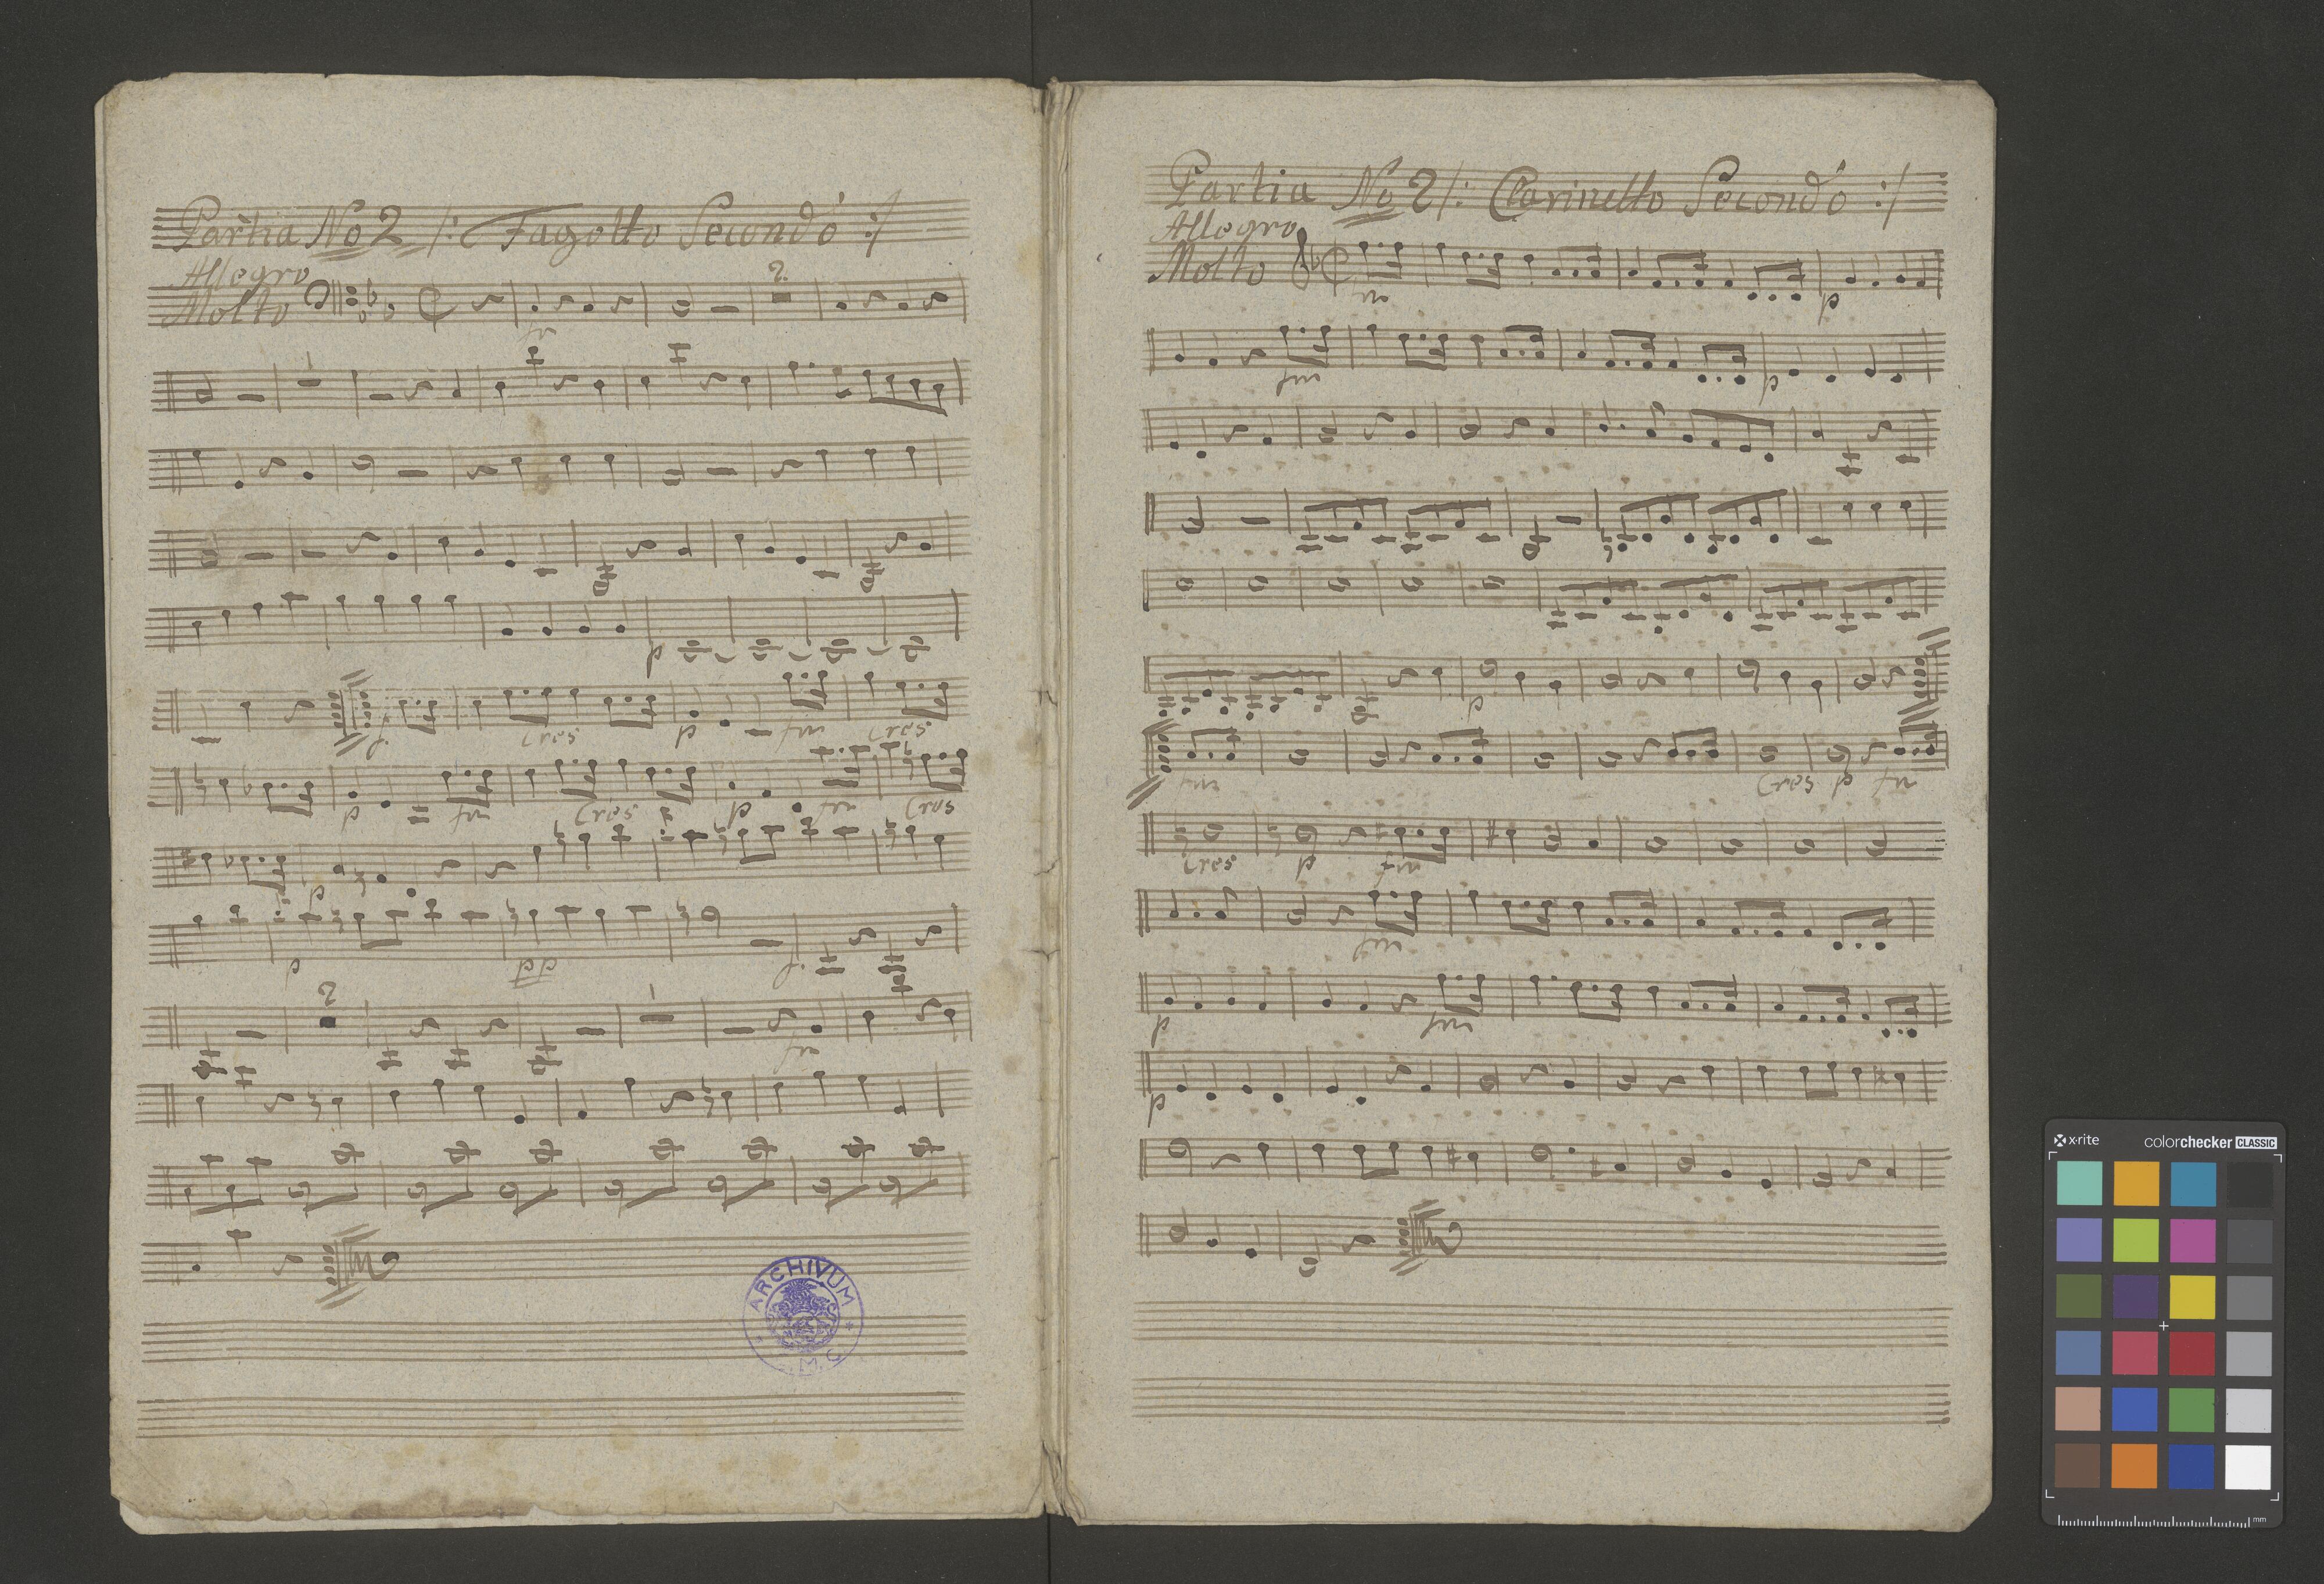 Partia No 2 /: Fagotto Secondó :/
Allegro
Molto
2.
p
fm
cres
p
fm
cres
p
fm
Cres
p
fm
Cres
p
p
pp
f.
2
Partia No 2 /: Clarinetto Secondó :/
Allegro
Molto
p
p
p
fm
Cres
p
fm
Cres
p
fm
p
p
ARCHIVUM
x·rite
colorchecker CLASSIC
mm